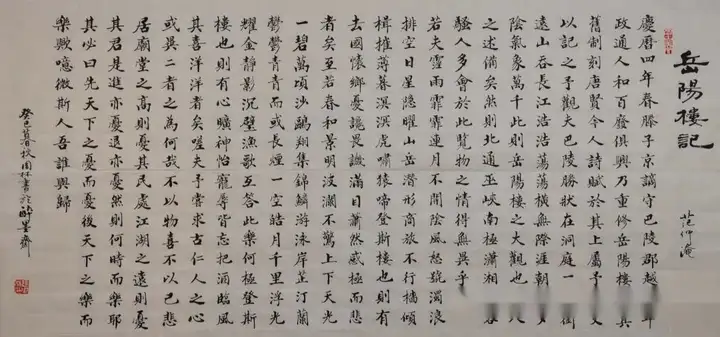 岳陽樓記
范仲淹
慶曆四年春滕子京謫守巴陵郡越年
政通人和百廢俱興乃重修岳陽樓其
舊制刻唐賢今人詩賦於其上屬予文
以記之予觀夫巴陵勝狀在洞庭一銜
遠山吞長江浩浩蕩蕩橫無際涯朝夕
陰氣象萬千此則岳陽樓之大觀也人
之述備矣然則北通巫峽南極瀟湘客
騷人多會於此覽物之情得無異乎
若夫霪雨霏霏連月不開陰風怒號濁浪
排空日星隱曜山岳潛形商旅不行檣傾
楫摧薄暮冥冥虎嘯猿啼登斯樓也則有
去國懷鄉憂讒畏譏滿目蕭然感極而悲
者矣至若春和景明波瀾不驚上下天光
一碧萬頃沙鷗翔集錦鱗游泳岸芷汀蘭
鬱鬱青青而或長煙一空皓月千里浮光
耀金靜影沉璧漁歌互答此樂何極登斯
樓也則有心曠神怡寵辱皆忘把酒臨風
其喜洋洋者矣嗟夫予嘗求古仁人之心
或異二者之為何哉不以物喜不以己悲
居廟堂之高則憂其民處江湖之遠則憂
其君是進亦憂退亦憂然則何時而樂耶
其必曰先天下之憂而憂後天下之樂而
樂歟噫微斯人吾誰與歸
癸巳暮春牧周林書於墨齋